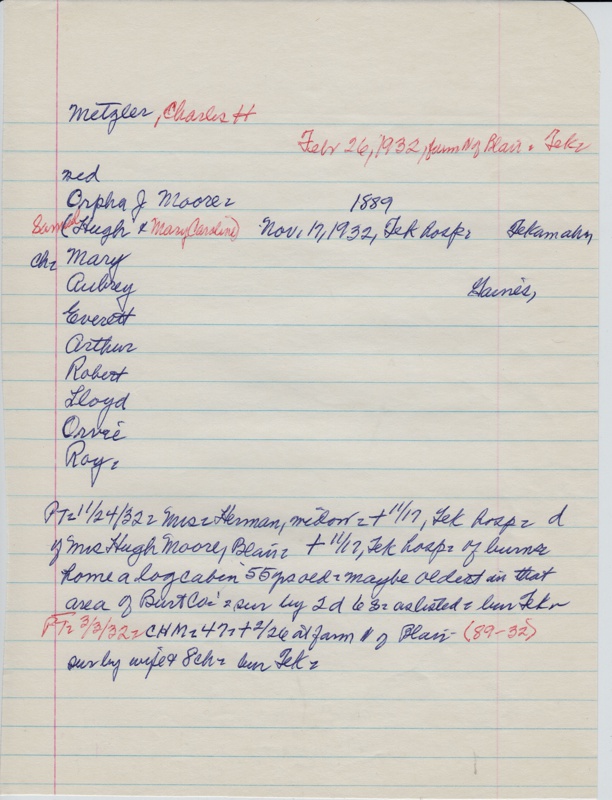 Metzler, Charles H
Febr 26, 1932, farm N of Blair = Tek=
md
Orpha J Moore= 1889
(Hugh & Mary Caroline) Nov. 17, 1932, Tek hosp= Tekamah
ch= Mary
Aubrey Gaines,
Everett
Arthur
Robert
Lloyd
Orvie
Roy=
PT= 11/24/32= Mrs= Herman, widow= + 11/17, Tek hosp= d
of Mrs Hugh Moore, Blair= + 11/17, Tek hosp= of burns=
home a log cabin 55 yrs old= maybe oldest in that
area of Burt Co= sur by 2 d 6 s= as listed= bur Tek=
PT= 3/3/32= CHM= 47= + 2/26 at farm N of Blair- (89-32)
sur by wife & 8 ch= bur Tek=